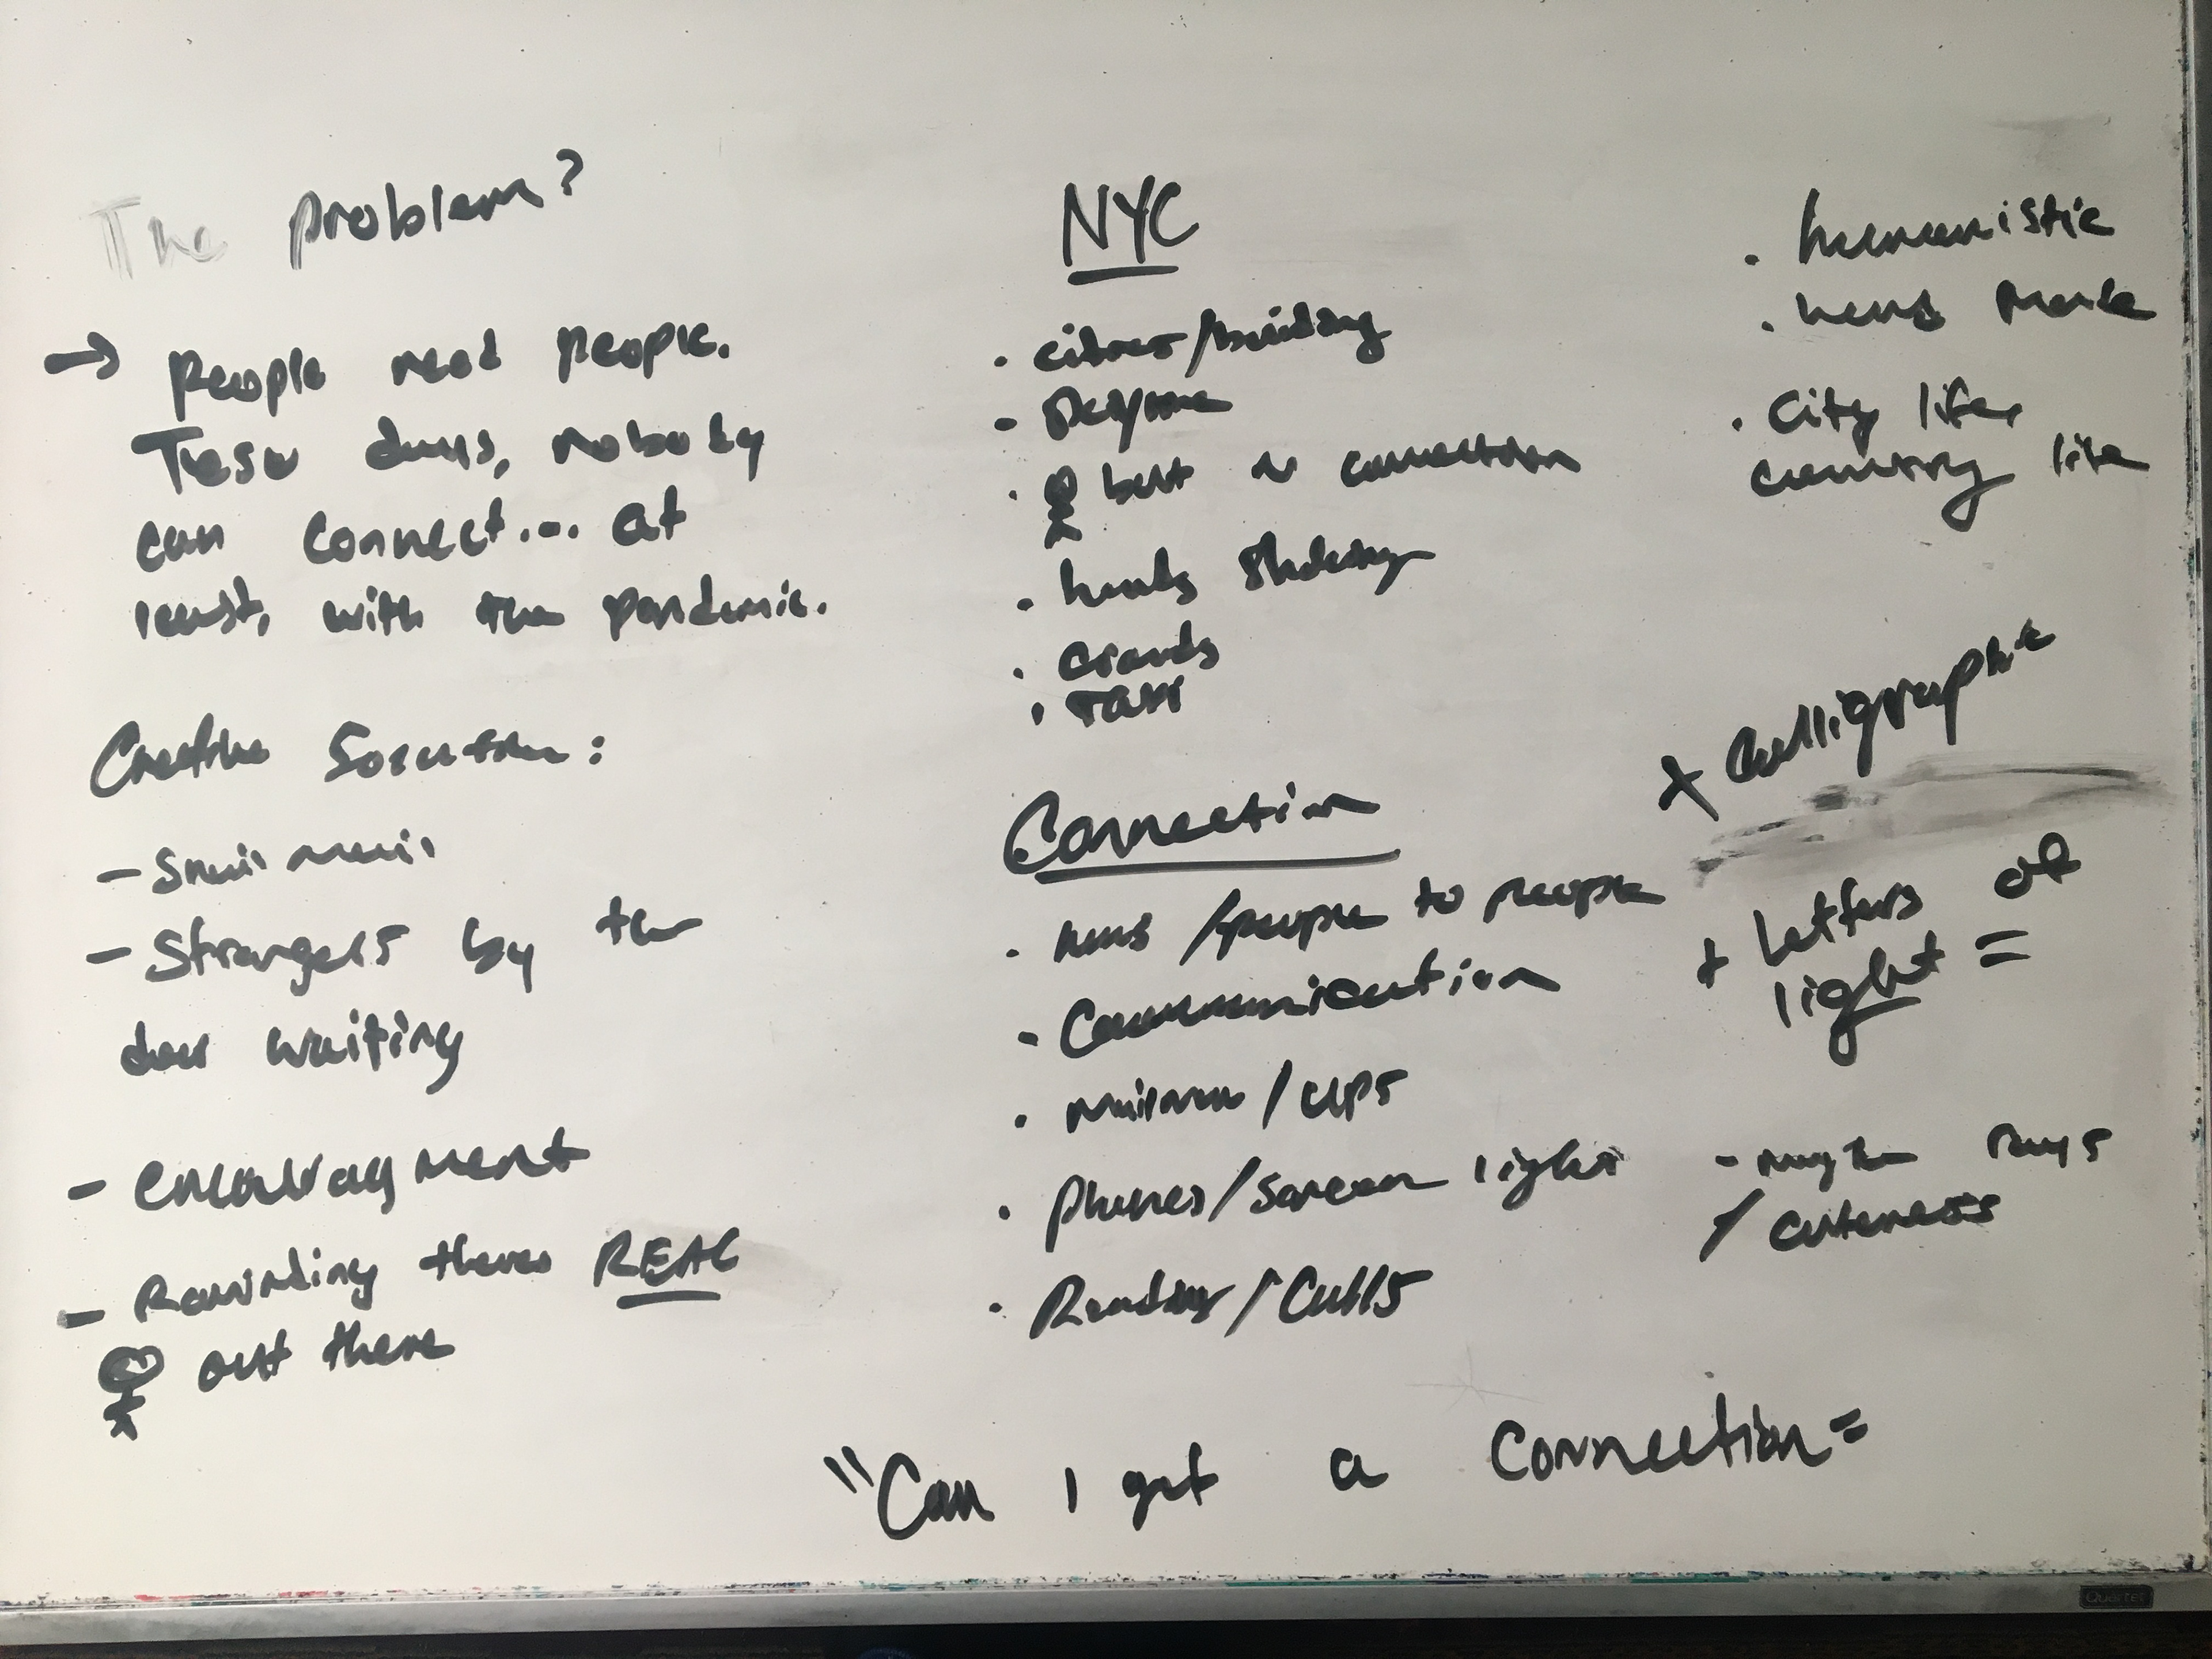 The problem?
→ People need people.
These days, nobody
can connect... at
least, with the pandemic.
Creative Solution:
- Snail mail
- Strangers by the
door waiting
- encouragment
- Reminding theres REAL
out there
NYC
• cities/building
•
• but no connection
• hands shaking
• crowds
• Taxi
Connection
• /people to people
• Communication
• mailman/UPS
• Phones/screen light
• Reading/Calls
• humanistic
• hand made
• City life,
country life
+ Calligraphic
+ Letters of
light =
- rays
/ cuteness
"Can I get a connection"
Quartet